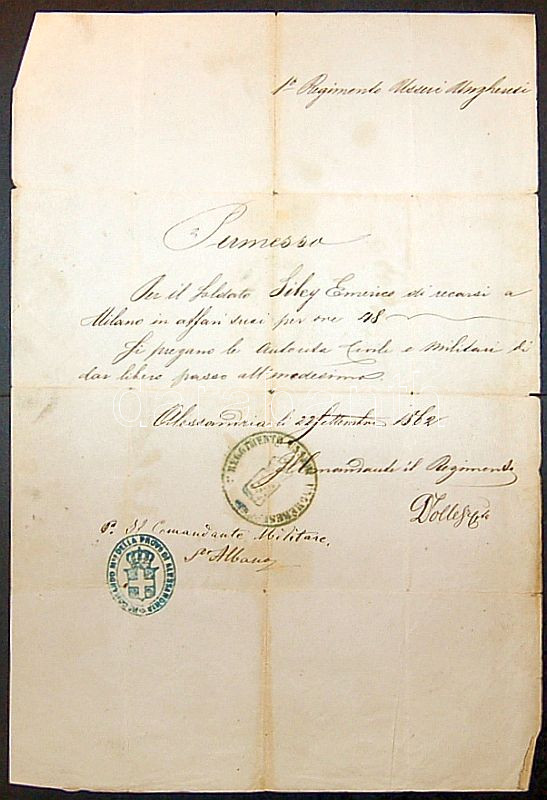 1º Regimento Usseri Ungheresi
Permesso
Per il Soldato Siley Emerico di recarsi a
Milano in affari suoi per ore 48
Si pregano le Autorità Civili e Militari di
dar libero passo all'medesimo.
Alessandria li 22 Settembre 1862
Il Comandante il Regimento
REGGIMENTO USSERI UNGHERESI
Pº Il Comandante Militare,
Sº Albano
COMANDO Mre DELLA PROVª DI ALESSANDRIA